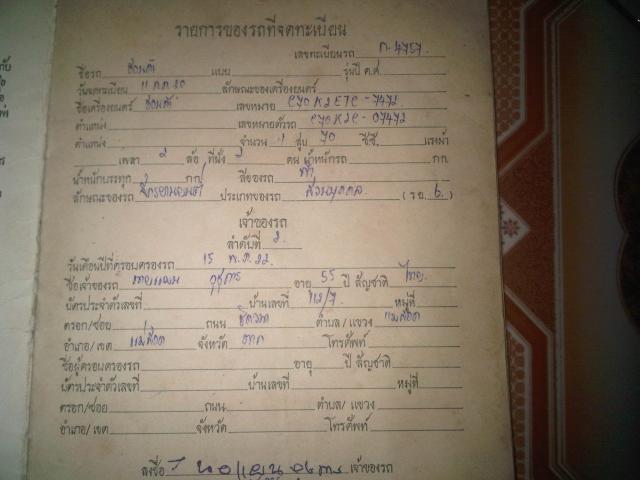 รายการของรถที่จดทะเบียน
เลขทะเบียนรถ ก-4757
ชื่อรถ ฮอนด้า แบบ รุ่นปี ค.ศ.
วันจดทะเบียน 11 ก.ค. 20 ลักษณะของเครื่องยนต์
ชื่อเครื่องยนต์ ฮอนด้า เลขหมาย C70K2ETC-7472
ตำแหน่ง เลขหมายตัวรถ C70K2C-07472
ตำแหน่ง จำนวน 1 สูบ 70 ซีซี. แรงม้า
เพลา 2 ล้อ ที่นั่ง คน น้ำหนักรถ กก
น้ำหนักบรรทุก กก สีของรถ ฟ้า
ลักษณะของรถ จักรยานยนต์ ประเภทของรถ ส่วนบุคคล (รย. 6.)
เจ้าของรถ
ลำดับที่ 2.
วันเดือนปีที่ครอบครองรถ 15 พ.ค. 22
ชื่อเจ้าของรถ อายุ 55 ปี สัญชาติ ไทย
บัตรประจำตัวเลขที่ บ้านเลขที่ 112/7 หมู่ที่
ตรอก/ซอย ถนน ชิดวนา ตำบล/แขวง แม่สอด
อำเภอ/เขต แม่สอด จังหวัด ตาก โทรศัพท์
ชื่อผู้ครอบครองรถ อายุ ปี สัญชาติ
บัตรประจำตัวเลขที่ บ้านเลขที่ หมู่ที่
ตรอก/ซอย ถนน ตำบล/แขวง
อำเภอ/เขต จังหวัด โทรศัพท์
ลงชื่อ เจ้าของรถ